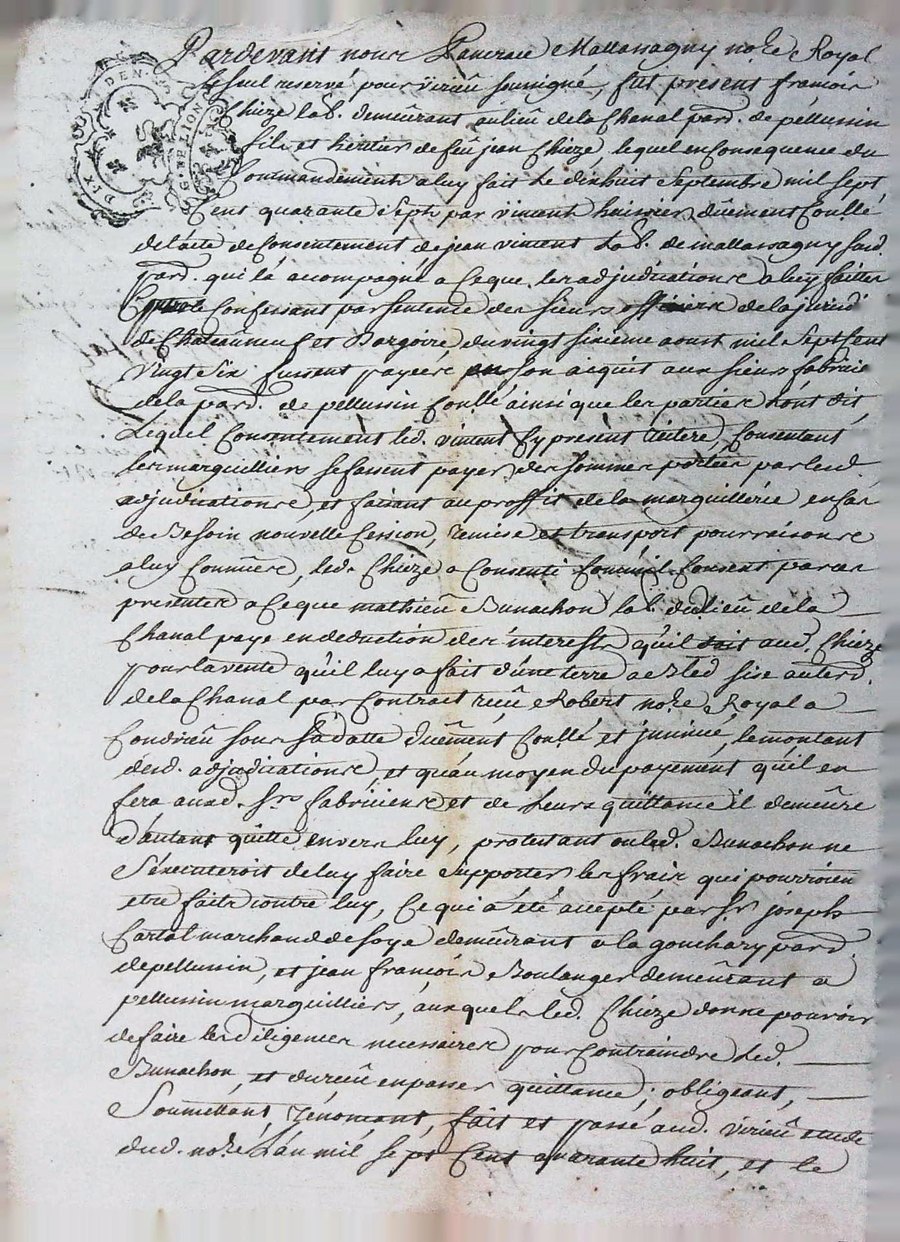 DIX DEN.S
G. DE LION
Pardevant nous Pancrace Mallassagny no.re Royal
Seul reservé pour virieu soussigné, fut present françois
Chieze lab.r demeurant au lieu de la Chanal par.d de pellussin
fils et heritier de feu jean Chieze, lequel en Consequence du
Commandement a luy fait le dixhuit Septembre mil sept
Cent quarante Sept par vincent huissier düement Conllé
de l'acte de Consentement de jean vincent lab.r de mallassagny sus.d
par.d qui la accompagné a Ce que les adjudications a luy faites
le Confessant par sentence des sieurs officiers de la jurid.
de Chateauneuf et Dargoire du vingt sixieme aoust mil Sept Cent
Vingt Six fussent payées en son acquit aux sieurs fabric.
de la par.d de pellussin Conllé ainsi que les parties l'ont dit
Lequel Consentement led. vincent Cy present reitere, Consentant
les marguilliers se fassent payer des sommes portées par lesd
adjudications, et faisant au proffit de la marguillerie en Cas
de Besoin nouvelle Cession, remise et transport pour raison de
a luy Connüe, led. Chieze a Consenti Comme il Consent par ces
presentes a Ce que mathieu Bunachon lab.r du lieu de la
Chanal paye en deduction des interest qu'il doit aud. Chieze
pour la vente qu'il luy a fait d'une terre sise au terr.
de la Chanal par Contrait reçu Robert no.re Royal a
Condrieu sous Sa datte düement Conllé et insinué, le montant
desd. adjudications, et qu'au moyen du payement qu'il en
fera ausd. S.rs fabriciens et de Leurs quittance il demeure
d'autant quitte envers luy, protestant ou led. Bunachon ne
S'executeroit de luy faire Supporter les frais qui pourroient
etre faits contre luy, Ce qui a été accepté par S.r joseph
Cartal marchand de soye demeurant a la gouchary par.d
de pellussin, et jean françois Boulanger demeurant a
pellussin marguilliers, auxquels led. Chieze donne pouvoir
de faire les diligences necessaires pour Contraindre led.
Bunachon, et du reçu en passer quittance; obligeant,
Soumettant, renonçant, fait et passé aud. virieu etude
dud. no.re L'an mil sept Cent quarante huit, et le